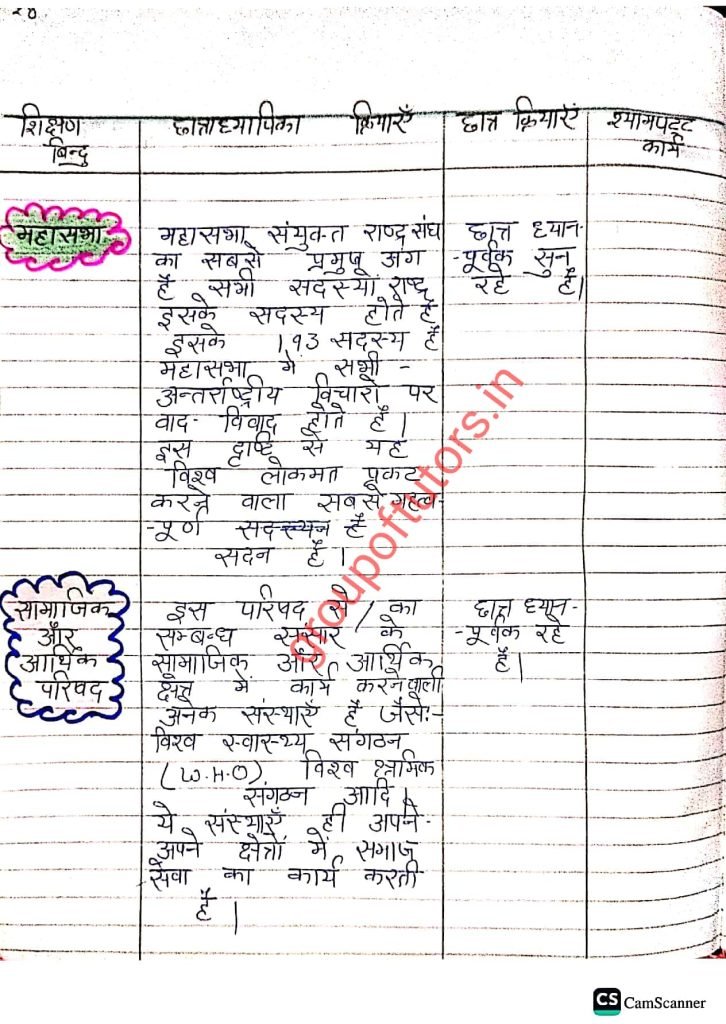 शिक्षण छात्राध्यापिका क्रियाएँ छात्र क्रियाएँ श्यामपट्ट
बिन्दु कार्य
महासभा
महासभा संयुक्त राष्ट्र संघ
का सबसे प्रमुख अंग
है सभी सदस्यों राष्ट्र
इसके सदस्य होते हैं
इसके 193 सदस्य हैं
महासभा में सभी -
अन्तर्राष्ट्रीय विचारों पर
वाद- विवाद होते हैं।
इस दृष्टि से यह
विश्व लोकमत प्रकट
करने वाला सबसे महत्व-
-पूर्ण है
सदन है।
छात्र ध्यान-
-पूर्वक सुन
रहे हैं।
सामाजिक
और
आर्थिक
परिषद
इस परिषद से / का
सम्बन्ध संसार के
सामाजिक और आर्थिक
क्षेत्र में कार्य करने वाली
अनेक संस्थाएँ हैं जैसेः-
विश्व स्वास्थ्य संगठन
(W.H.O). विश्व श्रमिक
संगठन आदि।
ये संस्थाएँ ही अपने-
अपने क्षेत्रों में समाज
सेवा का कार्य करती
हैं।
छात्र ध्यान-
-पूर्वक रहे
हैं।
groupoftutors.in
CS CamScanner